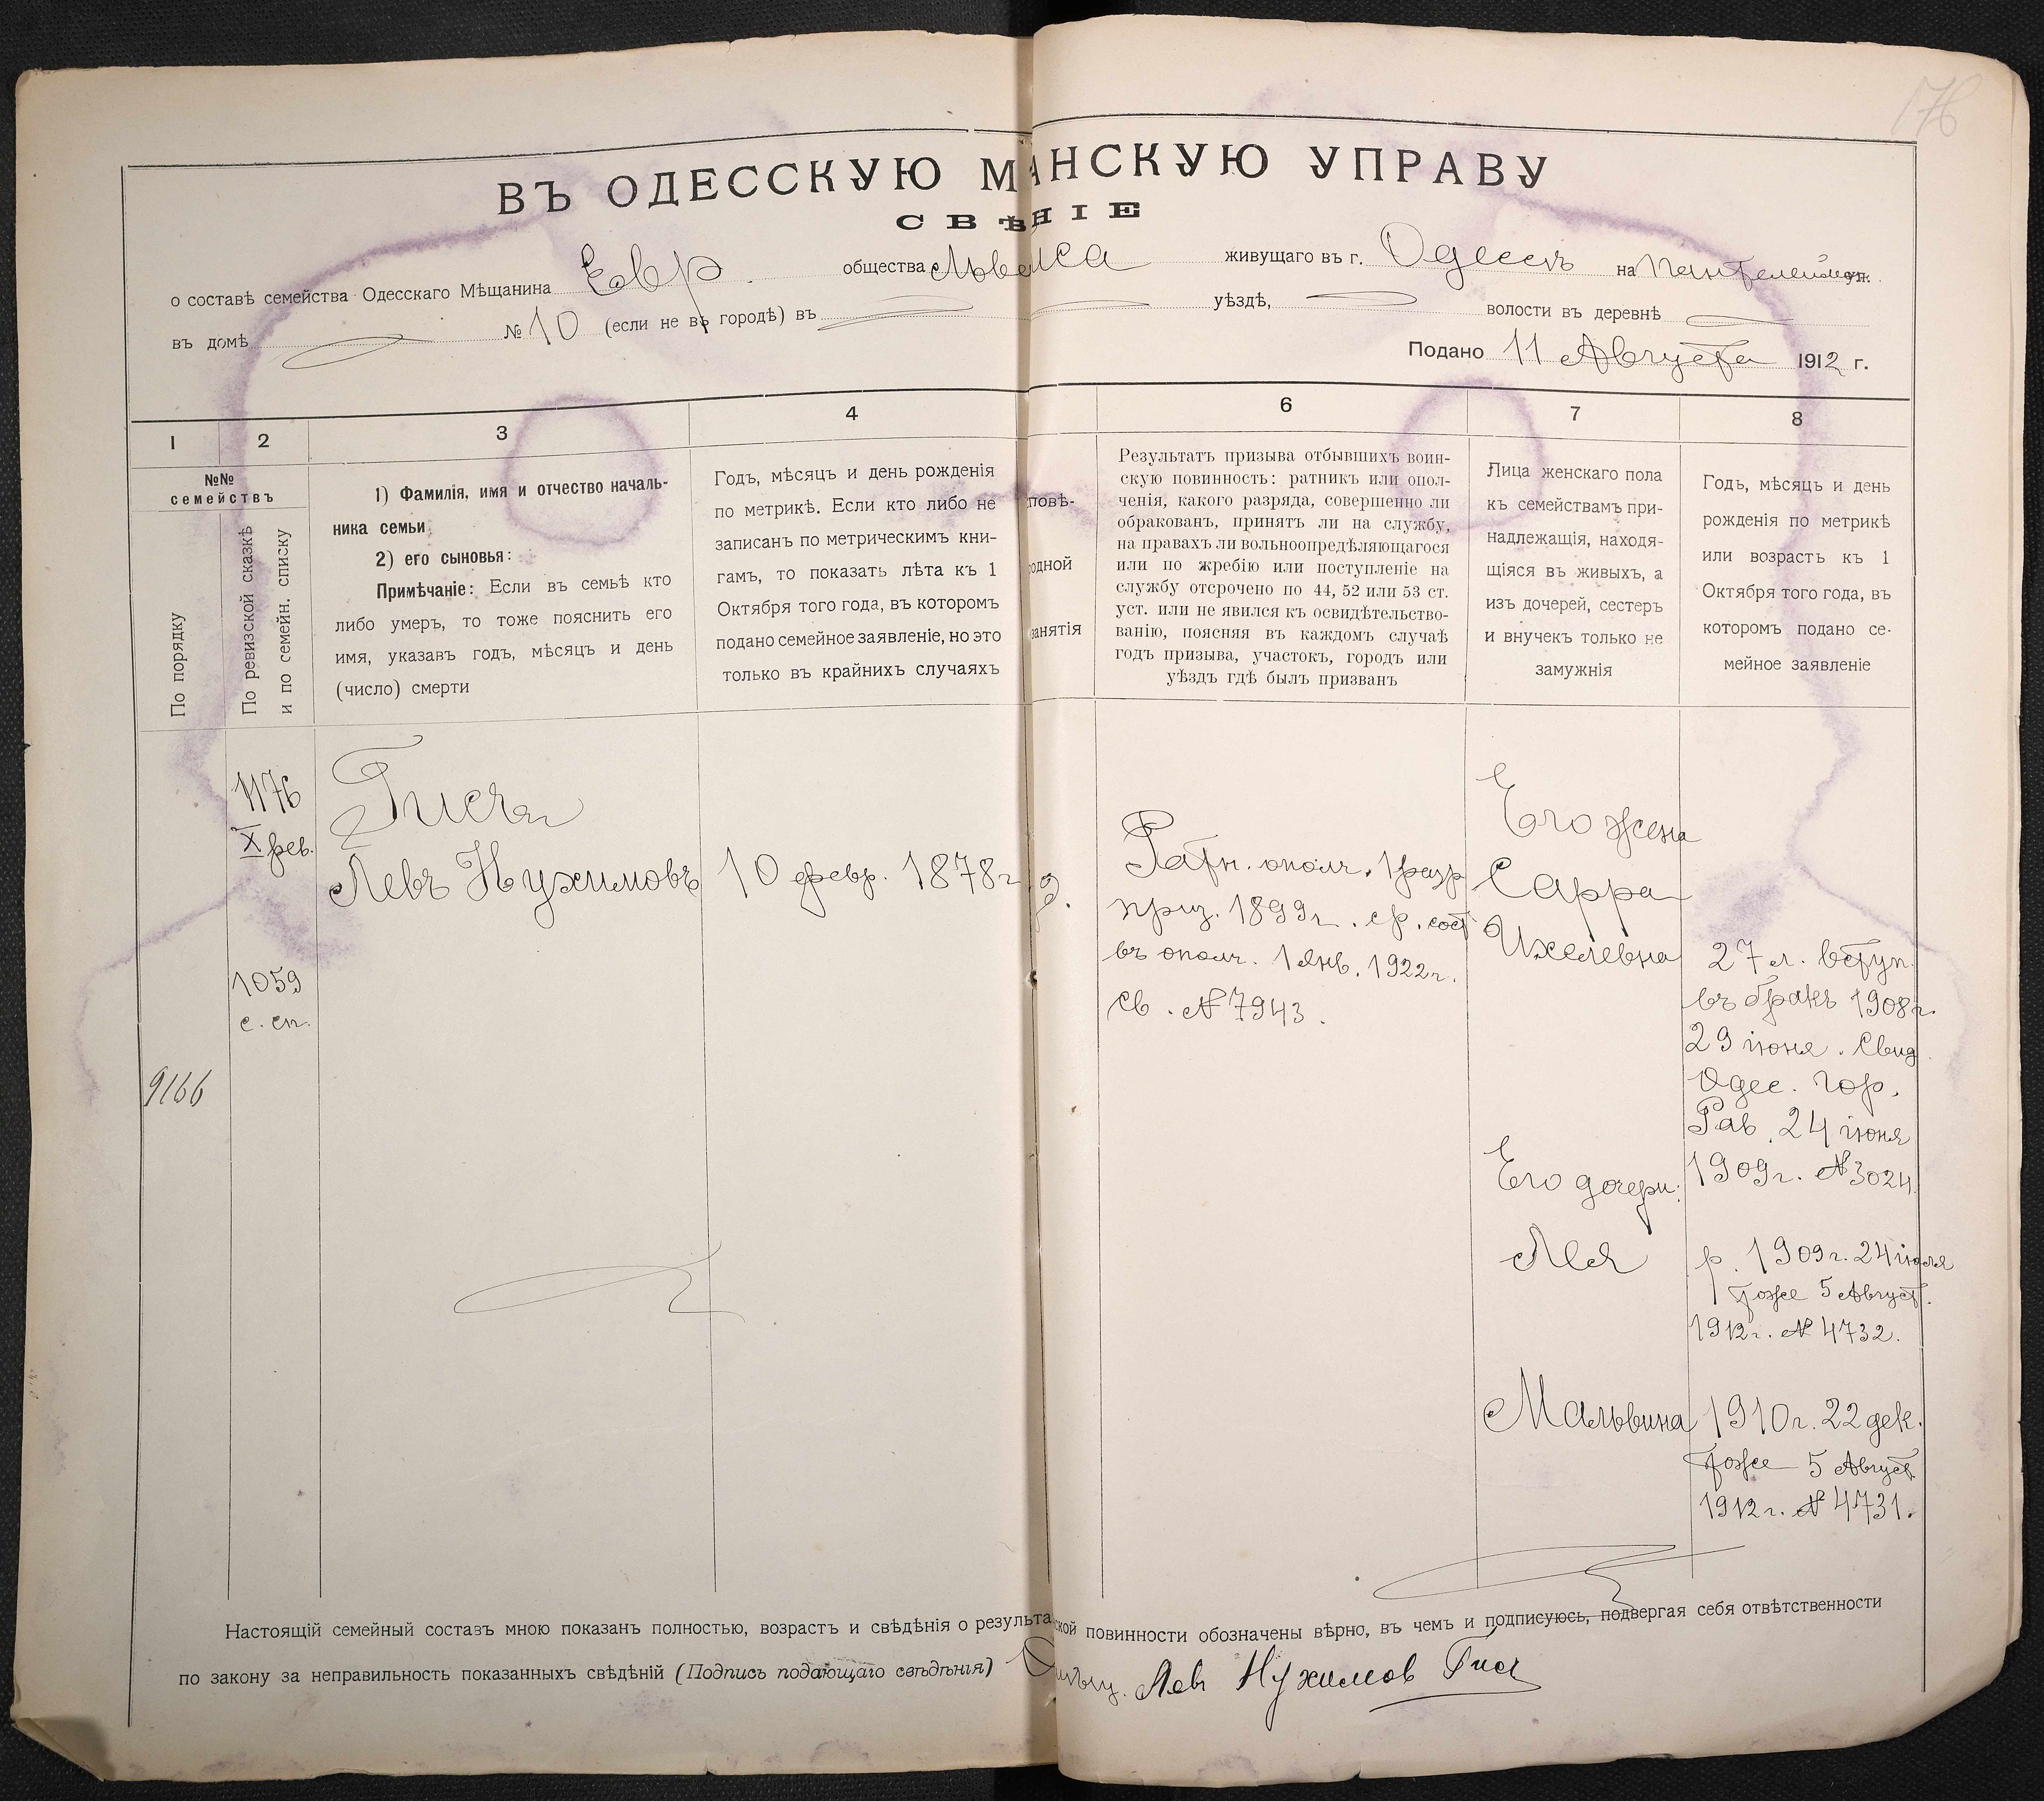 176
ВЪ ОДЕССКУЮ М АНСКУЮ УПРАВУ
СВѢ НІЕ
о составѣ семейства Одесскаго Мѣщанина Евр. общества живущаго въ г. Одессѣ на Пантелеймон. ул.
въ домѣ № 10 (если не въ городѣ) въ уѣздѣ, волости въ деревнѣ
Подано 11 Августа 1912 г.
1 2 3 4 6 7 8
№№
семействъ
По порядку
По ревизской сказкѣ
и по семейн. списку
1) Фамилія, имя и отчество началь-
ника семьи
2) его сыновья:
Примѣчаніе: Если въ семьѣ кто
либо умеръ, то тоже пояснить его
имя, указавъ годъ, мѣсяцъ и день
(число) смерти
Годъ, мѣсяцъ и день рожденія
по метрикѣ. Если кто либо не
записанъ по метрическимъ кни-
гамъ, то показать лѣта къ 1
Октября того года, въ которомъ
подано семейное заявленіе, но это
только въ крайнихъ случаяхъ
повѣ-
одной
занятія
Результатъ призыва отбывшихъ воин-
скую повинность: ратникъ или опол-
ченія, какого разряда, совершенно ли
обракованъ, принятъ ли на службу,
на правахъ ли вольноопредѣляющагося
или по жребію или поступленіе на
службу отсрочено по 44, 52 или 53 ст.
уст. или не явился къ освидѣтельство-
ванію, поясняя въ каждомъ случаѣ
годъ призыва, участокъ, городъ или
уѣздъ гдѣ былъ призванъ
Лица женскаго пола
къ семействамъ при-
надлежащія, находя-
щіяся въ живыхъ, а
изъ дочерей, сестеръ
и внучекъ только не
замужнія
Годъ, мѣсяцъ и день
рожденія по метрикѣ
или возрастъ къ 1
Октября того года, въ
которомъ подано се-
мейное заявленіе
9166
1176
X рев.
1059
с. сп.
Гисъ
Левъ Нухимовъ
10 февр. 1878 г.
Ратн. ополч. 1 разр
приз. 1899 г. ср. сост
въ ополч. 1 Янв. 1922 г.
св. № 7943.
Его жена
Сарра
Ихелевна
27 л. вступ.
въ бракъ 1908 г.
29 іюня. Свид.
Одес. Гор.
Рав. 24 іюня
1909 г. № 3024.
Его дочери:
Лея
р. 1909 г. 24 іюля
тоже 5 Август.
1912 г. № 4732.
Мальвина
1910 г. 22 дек.
тоже 5 Август.
1912 г. № 4731.
Настоящій семейный составъ мною показанъ полностью, возрастъ и свѣдѣнія о результа ской повинности обозначены вѣрно, въ чемъ и подписуюсь, подвергая себя отвѣтственности
по закону за неправильность показанныхъ свѣдѣній (Подпись подающаго свѣдѣнія) Левъ Нухимов Гисъ